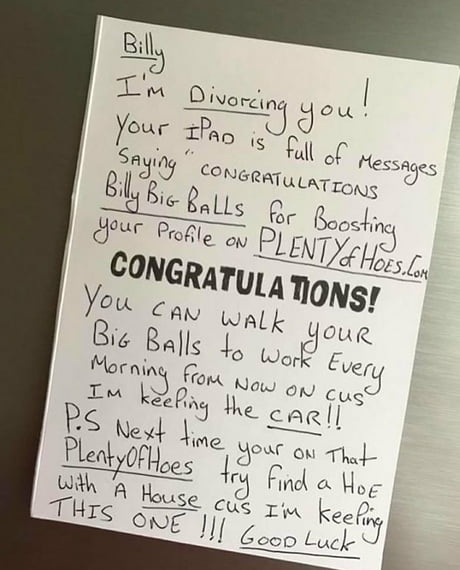 Billy
I'm Divorcing you!
Your IPAD is full of Messages
Saying "CONGRATULATIONS
Billy BIG BALLS for Boosting
your Profile on PLENTYofHOES.Com
CONGRATULATIONS!
You CAN WALK youR
BIG BALLS to WORK Every
Morning from Now ON cus
Im keeping the CAR!!
P.S Next time your ON That
PlentyOfHoes try find a HOE
with A House cus I'm keeping
THIS ONE !!! GOOD LUCK